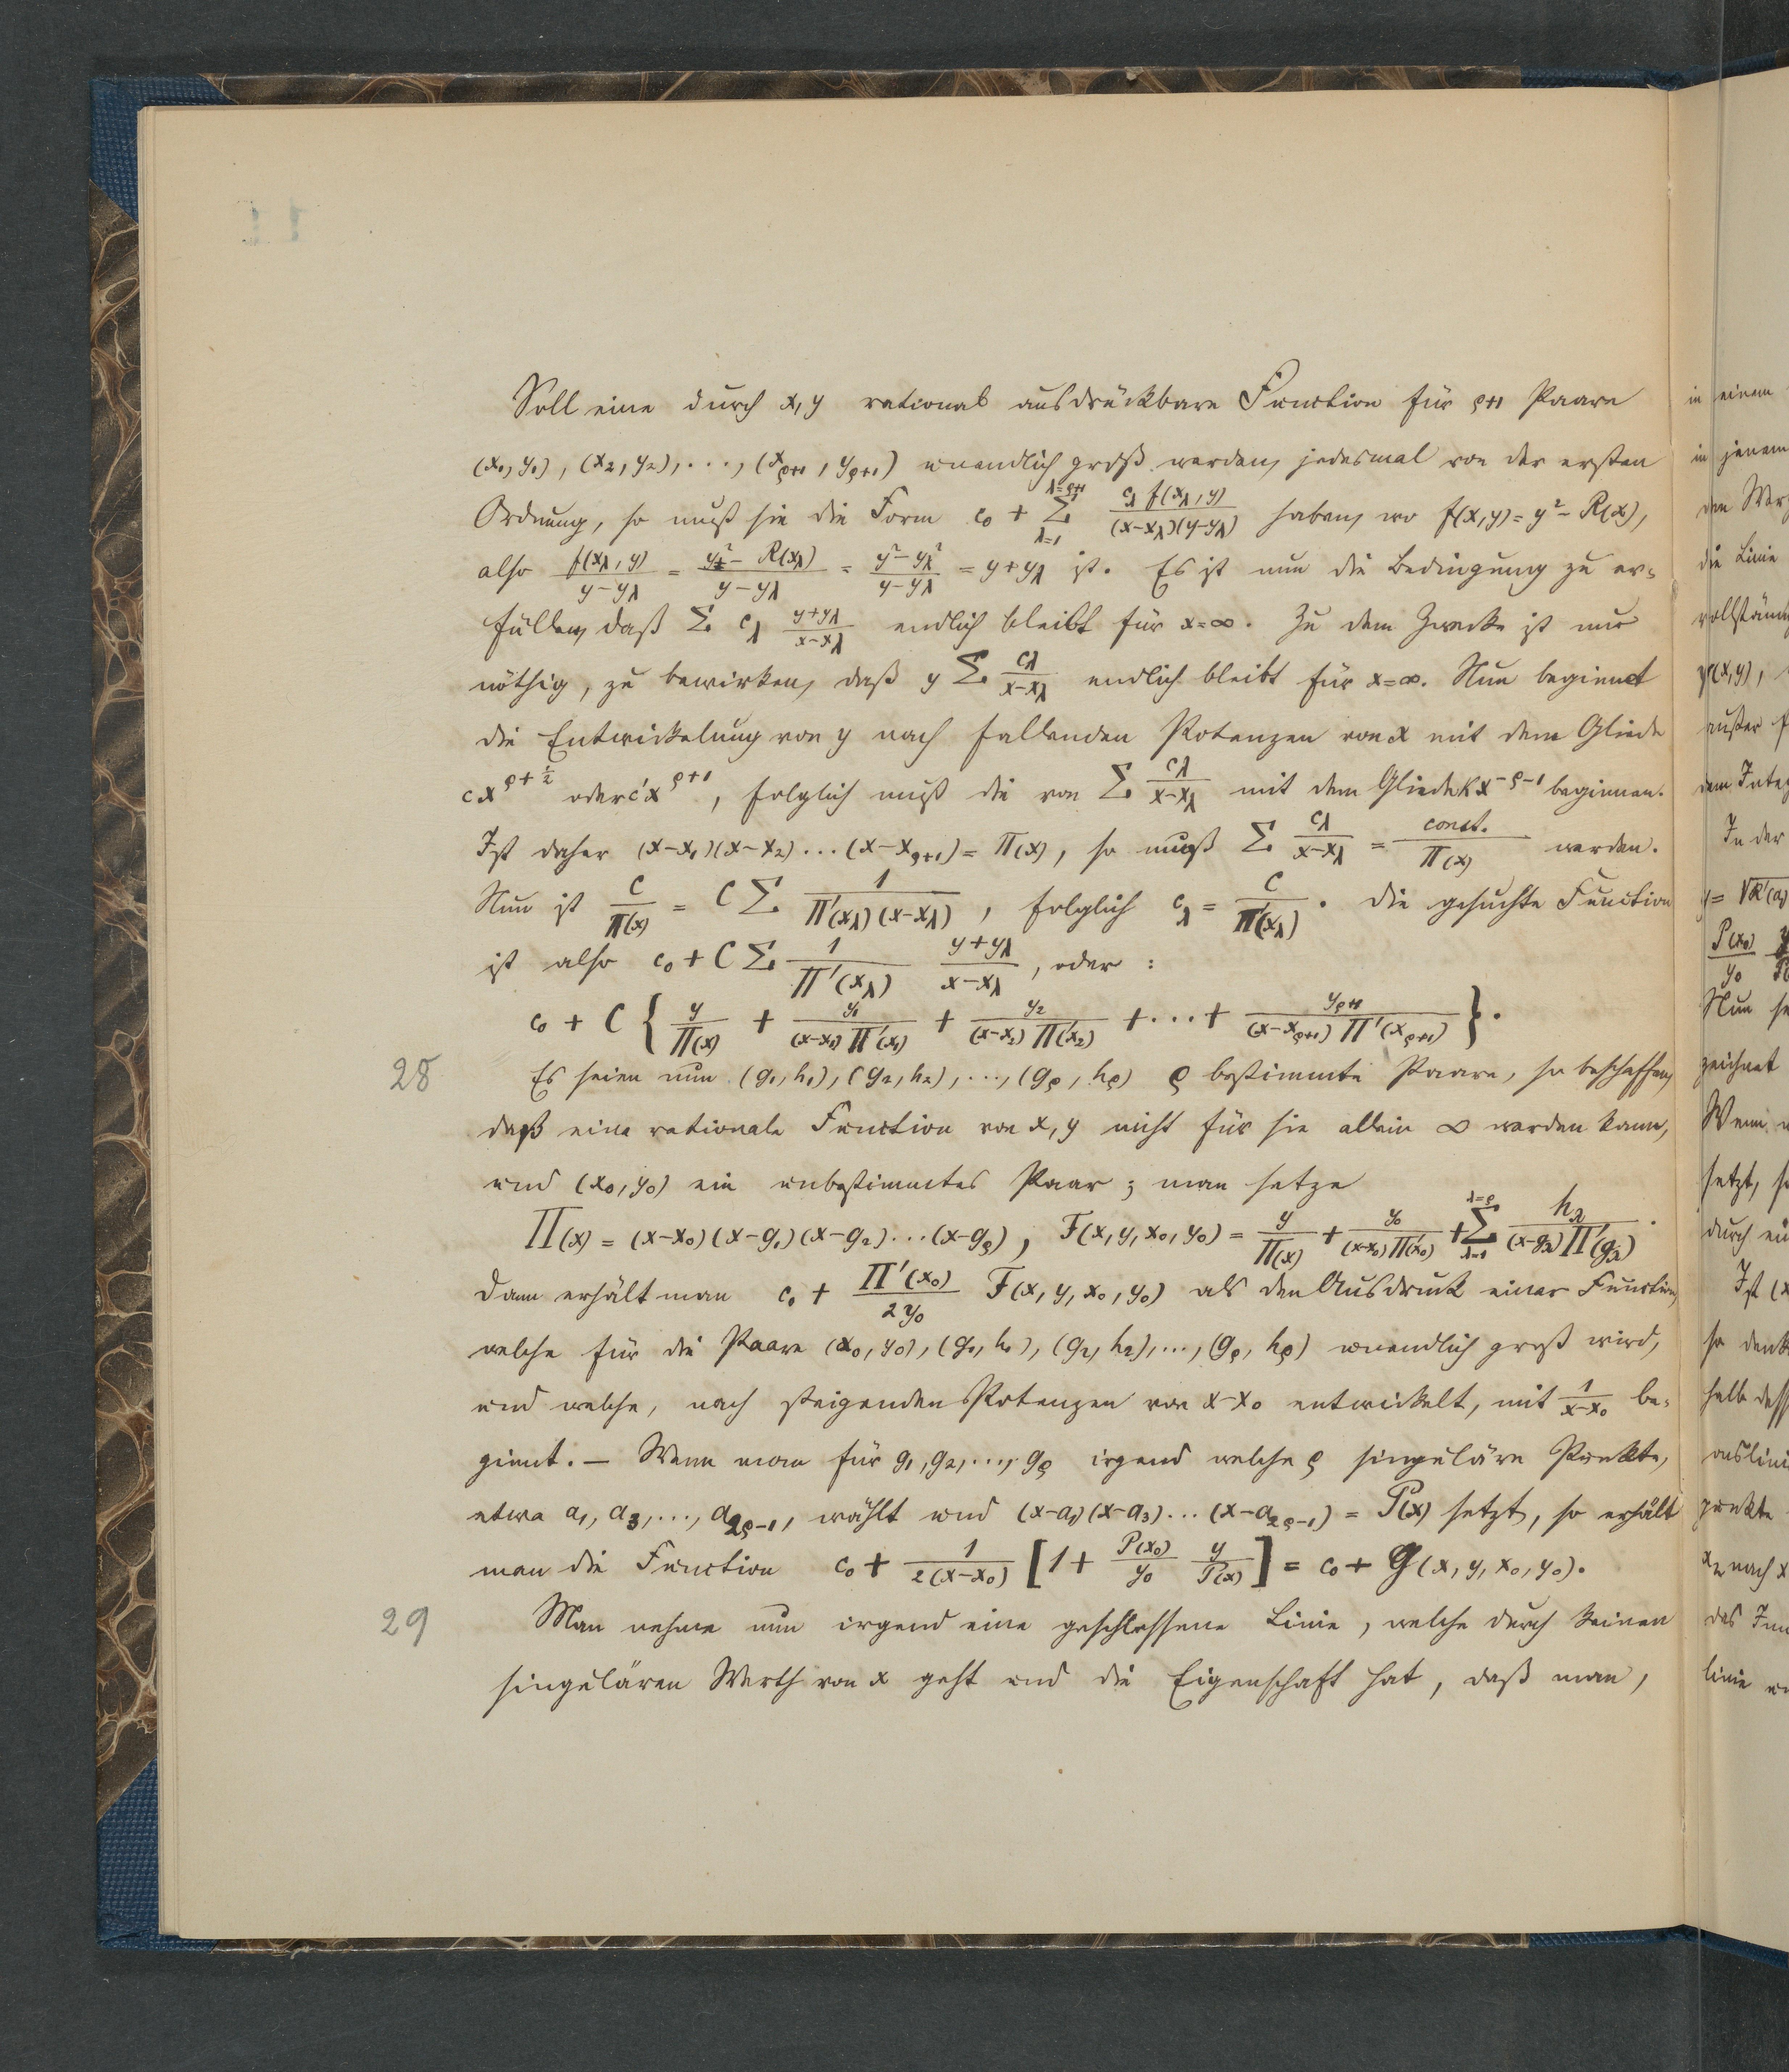 Soll eine durch x, y rational ausdrückbare Function für ρ+1 Paare
(x₁, y₁), (x₂, y₂), ..., (x_{ρ+1}, y_{ρ+1}) unendlich groß werden, jedesmal von der ersten
Ordnung, so muß sie die Form c₀ + \sum_{λ=1}^{λ=ρ+1} \frac{c_λ f(x_λ, y)}{(x-x_λ)(y-y_λ)} haben, wo f(x,y) = y² - R(x),
also \frac{f(x_λ, y)}{y-y_λ} = \frac{y² - R(x_λ)}{y-y_λ} = \frac{y²-y_λ²}{y-y_λ} = y+y_λ ist. Es ist nun die Bedingung zu er-
füllen, daß Σ c_λ \frac{y+y_λ}{x-x_λ} endlich bleibt für x=∞. Zu dem Zwecke ist nur
nöthig, zu bewirken, daß y Σ \frac{c_λ}{x-x_λ} endlich bleibt für x=∞. Nun beginnt
die Entwickelung von y nach fallenden Potenzen von x mit dem Gliede
cx^{ρ+\frac{1}{2}} oder c'x^{ρ+1}, folglich muß die von Σ \frac{c_λ}{x-x_λ} mit dem Gliede kx^{-ρ-1} beginnen.
Ist daher (x-x₁)(x-x₂)...(x-x_{ρ+1}) = Π(x), so muß Σ \frac{c_λ}{x-x_λ} = \frac{const.}{Π(x)} werden.
Nun ist \frac{C}{Π(x)} = C Σ \frac{1}{Π'(x_λ)(x-x_λ)}, folglich c_λ = \frac{C}{Π'(x_λ)}. Die gesuchte Function
ist also c₀ + C Σ \frac{1}{Π'(x_λ)} \frac{y+y_λ}{x-x_λ}, oder:
c₀ + C { \frac{y}{Π(x)} + \frac{y₁}{(x-x₁)Π'(x₁)} + \frac{y₂}{(x-x₂)Π'(x₂)} + ... + \frac{y_{ρ+1}}{(x-x_{ρ+1})Π'(x_{ρ+1})} }.
28 Es seien nun (g₁, h₁), (g₂, h₂), ..., (g_ρ, h_ρ) ρ bestimmte Paare, so beschaffen,
daß eine rationale Function von x, y nicht für sie allein ∞ werden kann,
und (x₀, y₀) ein unbestimmtes Paar; man setze
Π(x) = (x-x₀)(x-g₁)(x-g₂)...(x-g_ρ), F(x, y, x₀, y₀) = \frac{y}{Π(x)} + \frac{y₀}{(x-x₀)Π'(x₀)} + \sum_{λ=1}^{λ=ρ} \frac{h_λ}{(x-g_λ)Π'(g_λ)}.
Dann erhält man c₀ + \frac{Π'(x₀)}{2y₀} F(x, y, x₀, y₀) als den Ausdruck einer Function,
welche für die Paare (x₀, y₀), (g₁, h₁), (g₂, h₂), ..., (g_ρ, h_ρ) unendlich groß wird,
und welche, nach steigenden Potenzen von x-x₀ entwickelt, mit \frac{1}{x-x₀} be-
ginnt. — Wenn man für g₁, g₂, ..., g_ρ irgend welche ρ singuläre Punkte,
etwa a₁, a₃, ..., a_{2ρ-1}, wählt und (x-a₁)(x-a₃)...(x-a_{2ρ-1}) = P(x) setzt, so erhält
man die Function c₀ + \frac{1}{2(x-x₀)} [1 + \frac{P(x₀)}{y₀} \frac{y}{P(x)}] = c₀ + G(x, y, x₀, y₀).
29 Man nehme nun irgend eine geschlossene Linie, welche durch keinen
singulären Werth von x geht und die Eigenschaft hat, daß man,